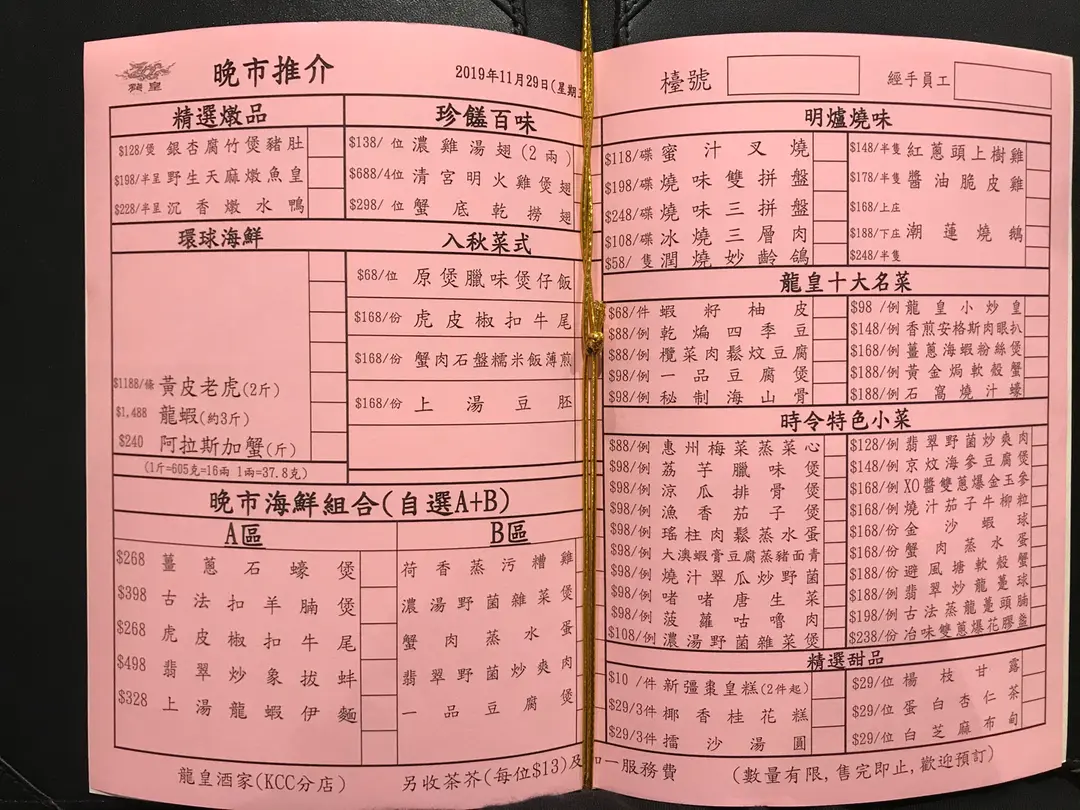 龍皇
晚市推介
2019年11月29日(星期
精選燉品
$128/煲 銀杏腐竹煲豬肚
$198/半呈 野生天麻燉魚皇
$228/半呈 沉香燉水鴨
珍饈百味
$138/ 位 濃雞湯翅(2兩)
$688/4位 清宮明火雞煲翅
$298/ 位 蟹底乾撈翅
環球海鮮
$1188/條 黃皮老虎(2斤)
$1,488 龍蝦(約3斤)
$240 阿拉斯加蟹(斤)
(1斤=605克=16兩 1兩=37.8克)
入秋菜式
$68/位 原煲臘味煲仔飯
$168/份 虎皮椒扣牛尾
$168/份 蟹肉石盤糯米飯薄煎
$168/份 上湯豆胚
晚市海鮮組合(自選A+B)
A區
$268 薑蔥石蠔煲
$398 古法扣羊腩煲
$268 虎皮椒扣牛尾
$498 翡翠炒象拔蚌
$328 上湯龍蝦伊麵
B區
荷香蒸污糟雞
濃湯野菌雜菜煲
蟹肉蒸水蛋
翡翠野菌炒爽肉
一品豆腐煲
龍皇酒家(KCC分店)
另收茶芥(每位$13)及
檯號
經手員工
明爐燒味
$118/碟 蜜汁叉燒
$198/碟 燒味雙拼盤
$248/碟 燒味三拼盤
$108/碟 冰燒三層肉
$58/ 隻 潤燒妙齡鴿
$148/半隻 紅蔥頭上樹雞
$178/半隻 醬油脆皮雞
$168/上庄
$188/下庄 潮蓮燒鵝
$248/半隻
龍皇十大名菜
$68/件 蝦籽柚皮
$88/例 乾煸四季豆
$88/例 欖菜肉鬆炆豆腐
$98/例 一品豆腐煲
$98/例 秘制海山骨
$98 /例 龍皇小炒皇
$148/例 香煎安格斯肉眼扒
$168/例 薑蔥海蝦粉絲煲
$188/例 黃金焗軟殼蟹
$188/例 石窩燒汁蠔
時令特色小菜
$88/例 惠州梅菜蒸菜心
$98/例 荔芋臘味煲
$98/例 涼瓜排骨煲
$98/例 漁香茄子煲
$98/例 瑤柱肉鬆蒸水蛋
$98/例 大澳蝦膏豆腐蒸豬面青
$98/例 燒汁翠瓜炒野菌
$98/例 啫啫唐生菜
$98/例 菠蘿咕嚕肉
$108/例 濃湯野菌雜菜煲
$128/例 翡翠野菌炒爽肉
$148/例 京炆海參豆腐煲
$168/例 XO醬雙蔥爆金玉參
$168/例 燒汁茄子牛柳粒
$168/份 金沙蝦球
$168/份 蟹肉蒸水蛋
$188/份 避風塘軟殼蟹
$188/例 翡翠炒龍躉球
$198/例 古法蒸龍躉頭腩
$238/份 冶味雙蔥爆花膠
精選甜品
$10 /件 新疆棗皇糕(2件起)
$29/3件 椰香桂花糕
$29/3件 擂沙湯圓
$29/位 楊枝甘露
$29/位 蛋白杏仁茶
$29/位 白芝麻布甸
加一服務費
(數量有限,售完即止,歡迎預訂)